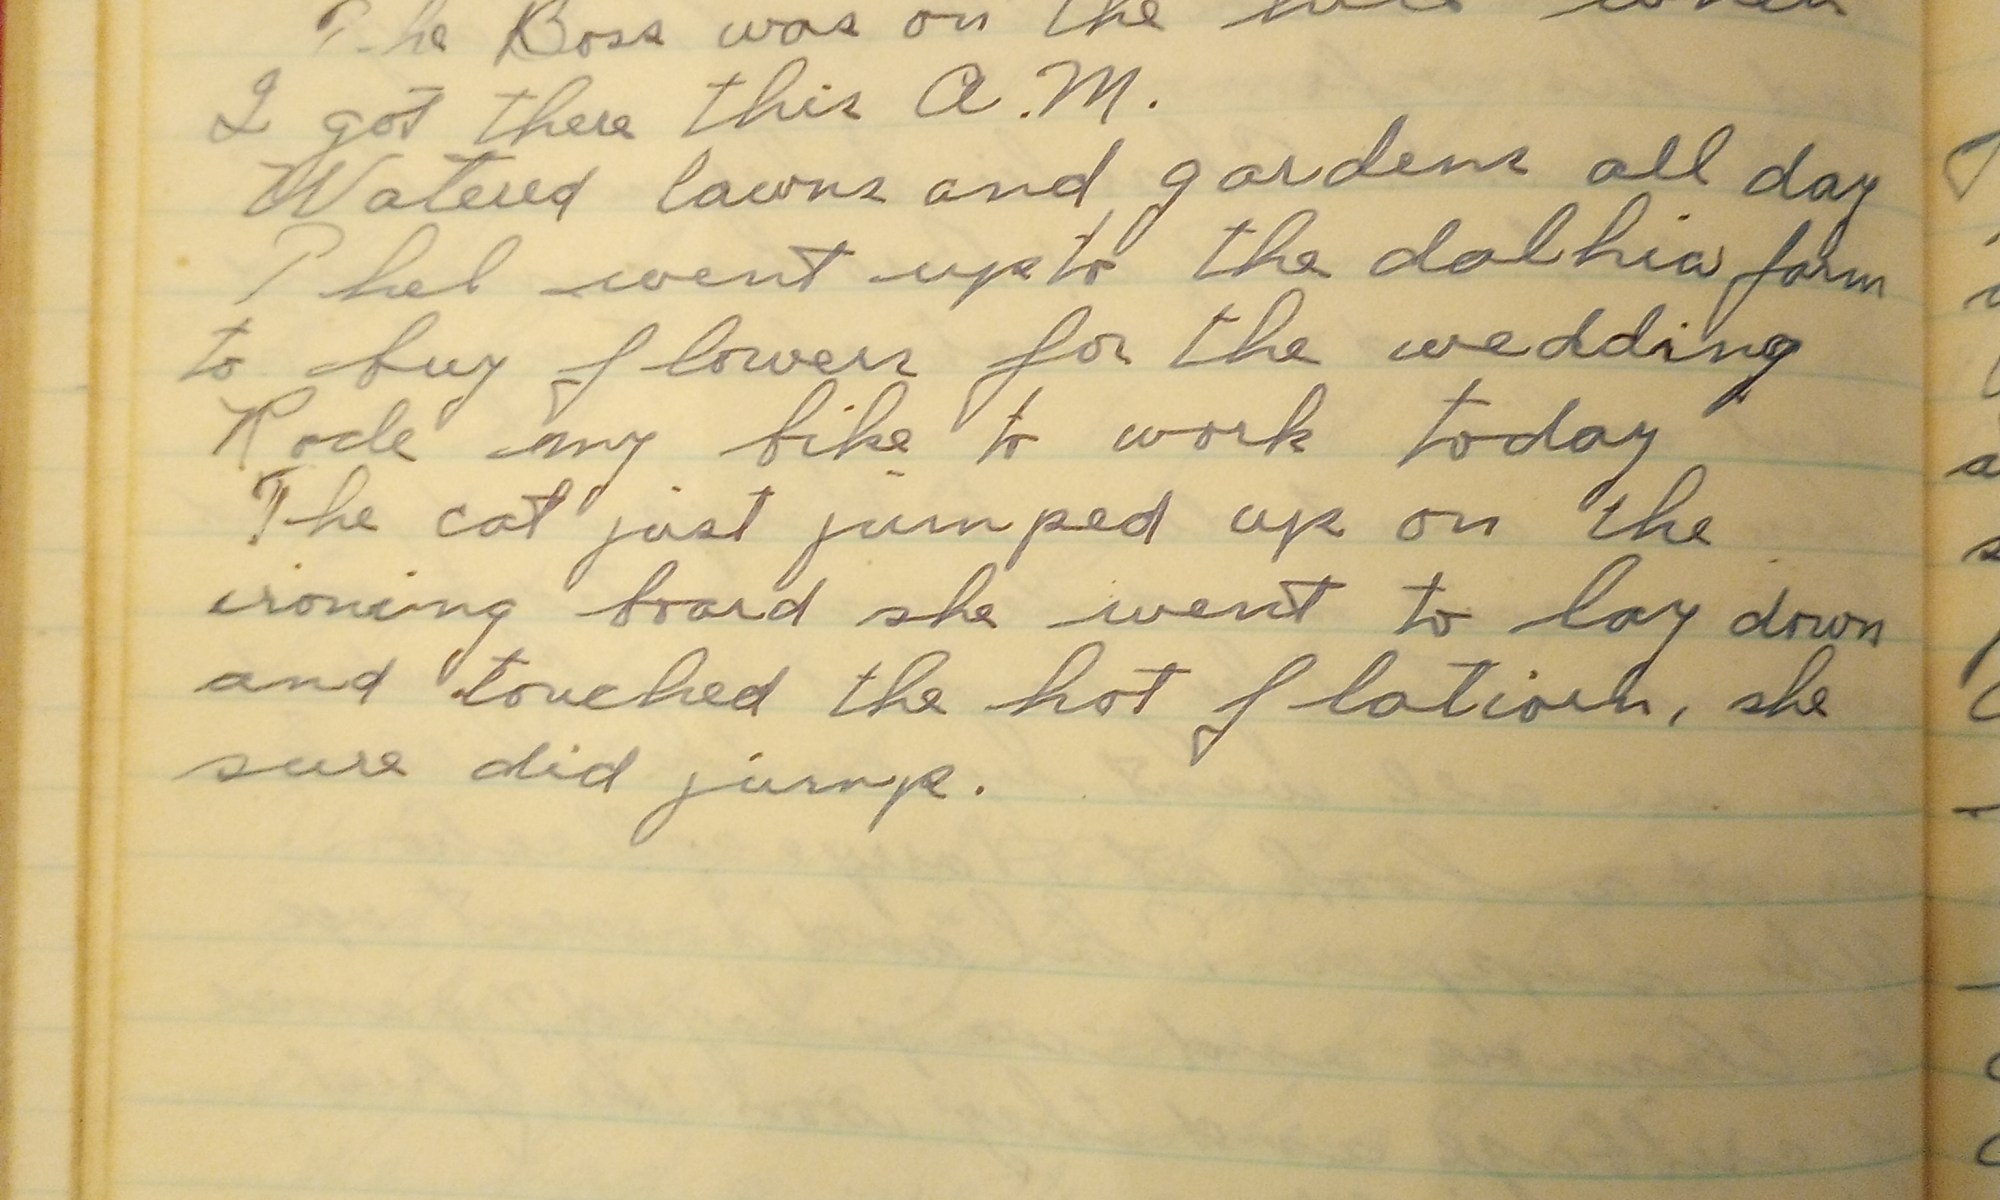 The Boss was on the when
I got there this A.M.
Watered lawns and gardens all day
Phel went up to the dalhia farm
to buy flowers for the wedding
Rode my bike to work today
The cat just jumped up on the
ironing board she went to lay down
and touched the hot flatiorn, she
sure did jump.